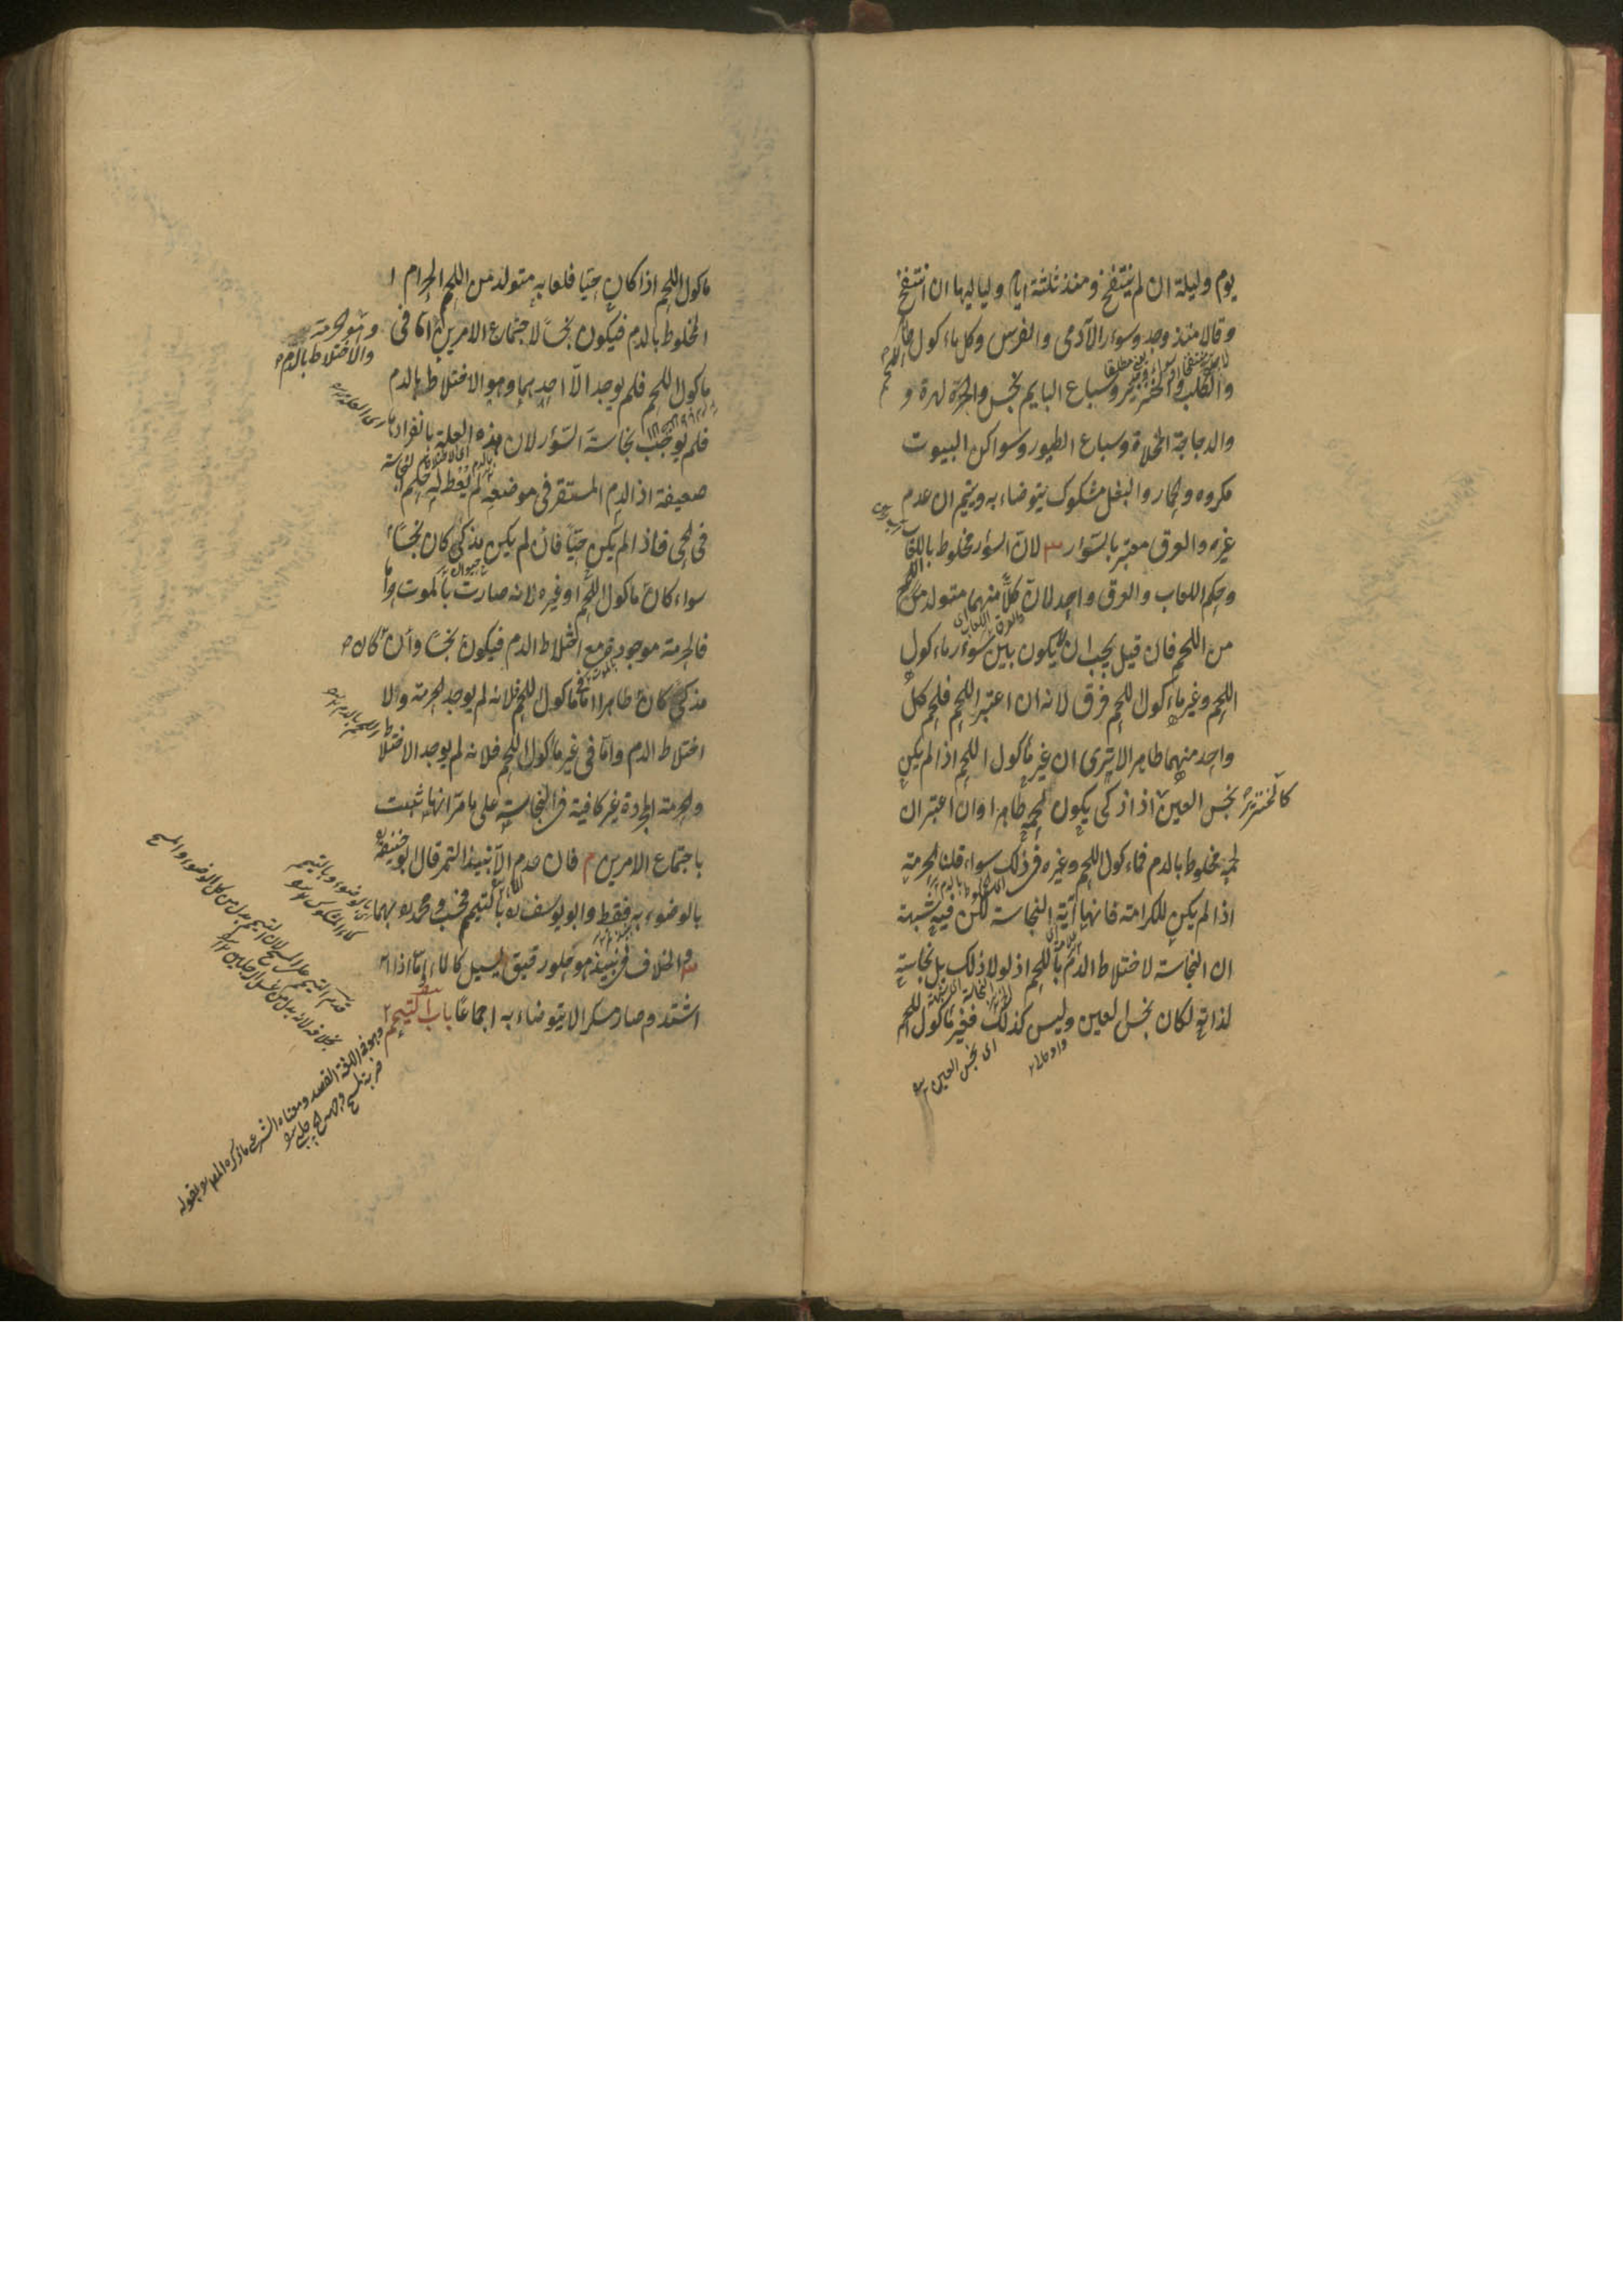 يوم وليلة ان لم ينتفخ ومنذ ثلثة ايام ولياليها ان انتفخ
وقالا منذ وجد وسؤر الآدمى والفرس وكل ماءكول اللحم طاهر
والكلب والخنزير وسباع البهايم نجس والهرة و
والدجاجة المخلاة وسباع الطيور وسواكن البيوت
مكروه والحمار والبغل مشكوك يتوضاء به ويتيمم ان عدم
غيره والعرق معتبر بالسؤر لان السؤر مخلوط باللعاب
وحكم اللعاب والعرق واحد لان كلا منهما متولد من اللحم
من اللحم فان قيل يجب ان لا يكون بين سؤر ماءكول
اللحم وغير ماءكول اللحم فرق لانه ان اعتبر اللحم فلحم كل
واحد منهما طاهر الا يرى ان غير مأكول اللحم اذا لم يكن
نجس العين اذا ذكى يكون لحمه طاهرا وان اعتبر ان
كالخنزير
لحمه مخلوط بالدم فماءكول اللحم وغيره فى ذلك سواء قلنا الحرمة
اذا لم يكن للكرامة فانها آية النجاسة لكن فيه شبهة
ان النجاسة لاختلاط الدم باللحم اذ لولا ذلك بل نجاسته
لذاته لكان نجس العين وليس كذلك فغير مأكول اللحم
اى نجس العين
مأكول اللحم اذا كان حيا فلعابه متولد من اللحم الحرام
المخلوط بالدم فيكون نجسا لاجتماع الامرين اما فى
وهو الحرمة
والاختلاط بالدم
مأكول اللحم فلم يوجد الا احدهما وهو الاختلاط بالدم
فلم يوجب نجاسة السؤر لان هذه العلة بانفرادها
ضعيفة اذ الدم المستقر فى موضعه لم يعط له حكم النجاسة
فى الحى فاذا لم يكن حيا فان لم يكن مذكى كان نجسا
سواء كان مأكول اللحم او غيره لانه صارت بالموت حراما
فالحرمة موجودة مع اختلاط الدم فيكون نجسا وان كان
مذكى كان طاهرا اما فى مأكول اللحم فلانه لم يوجد الحرمة ولا
اختلاط الدم واما فى غير مأكول اللحم فلانه لم يوجد الاختلاط
والحرمة المجردة غير كافية فى النجاسة على ما مر انها تثبت
باجتماع الامرين م فان عدم الا نبيذ التمر قال ابو حنيفة
بالوضوء به فقط وابو يوسف بالتيمم فحسب ومحمد بهما
والخلاف فى نبيذ هو حلو رقيق يسيل كالماء اما اذا
اشتد وصار مسكرا لا يتوضاء به اجماعا باب التيمم
وهو فى اللغة القصد ومعناه الشرعى ما ذكره المص بقوله